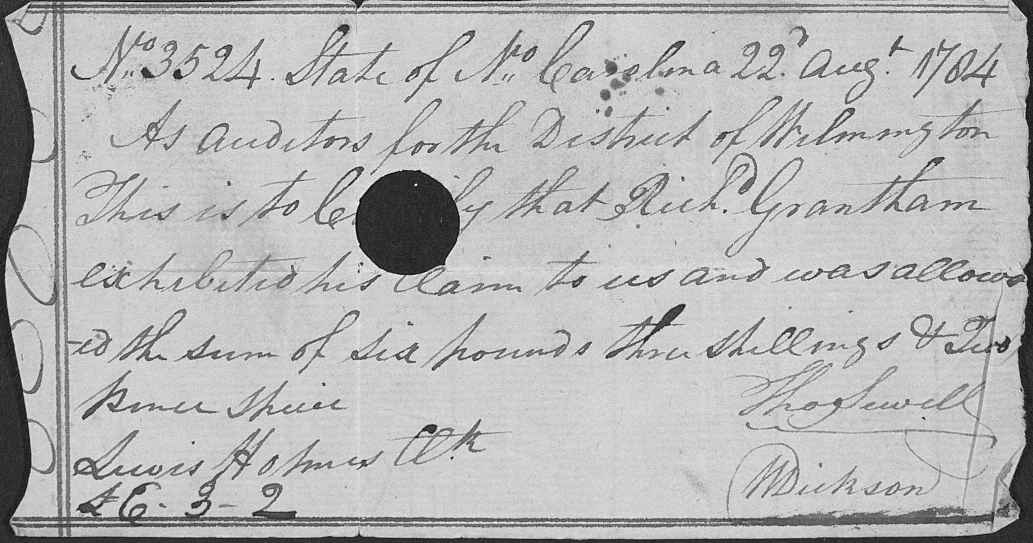 No. 3524. State of No. Carolina 22d. Augt. 1784
As auditors for the District of Wilmington
This is to Ce fy that Richd. Grantham
exhibited his claim to us and was allow
-ed the sum of six pounds three shillings & Two
pence Specie
Lewis Holmes Clk
£6-3-2
Tho Sewell
W Dickson